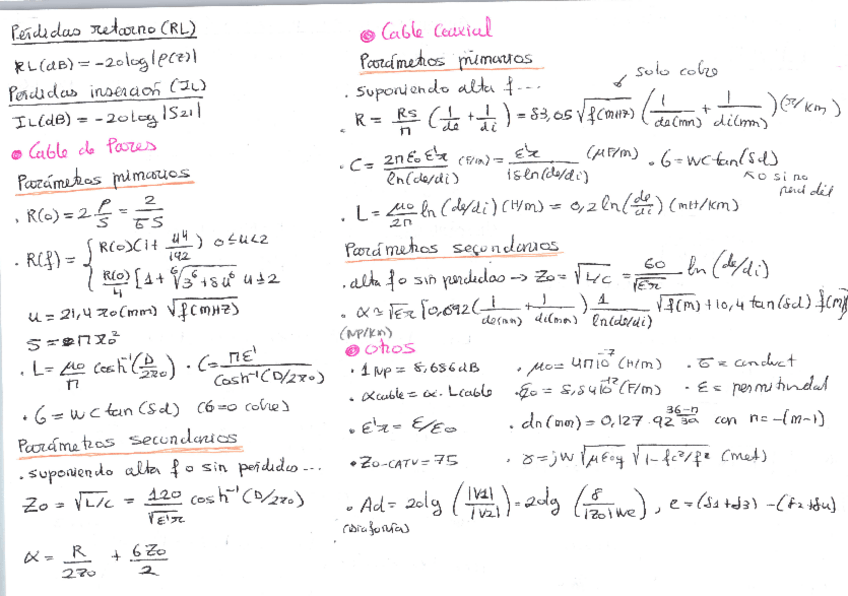 Pérdidas retorno (RL)
RL(dB) = -20log|ρ(z)|
Pérdidas inserción (IL)
IL(dB) = -20log|S21|
Cable de Pares
Parámetros primarios
. R(0) = 2 ρ/S = 2/σS
. R(f) = { R(0)(1 + u⁴/192) 0≤u<2
R(0)/4 [1 + ⁶√(3⁶+8u⁶) u≥2
u = 21,4 r0(mm) √f(MHz)
S = π r0²
. L = μ0/π cosh⁻¹(D/2r0) . C = πε'/cosh⁻¹(D/2r0)
. G = wc tan(δd) (G=0 cobre)
Parámetros secundarios
. suponiendo alta f o sin perdidas...
Z0 = √L/C = 120/√ε'r cosh⁻¹(D/2r0)
α = R/2Z0 + GZ0/2
Cable Coaxial
Parámetros primarios
. suponiendo alta f...
solo cobre
. R = Rs/π (1/de + 1/di) = 83,05 √f(MHz) (1/de(mm) + 1/di(mm)) (Ω/km)
. C = 2πε0ε'r/ln(de/di) (F/m) = ε'r/18ln(de/di) (μF/m) . G = wc tan(δd)
↖0 si no
perd diél
. L = μ0/2π ln(de/di) (H/m) = 0,2 ln(de/di) (mH/km)
Parámetros secundarios
. alta f o sin perdidas → Z0 = √L/C = 60/√εr ln(de/di)
. α ≈ √εr [0,692(1/de(mm) + 1/di(mm)) 1/ln(de/di) √f(M) + 10,4 tan(δd) f(M)]
(NP/km)
Otros
. 1Np = 8,686 dB . μ0 = 4π10⁻⁷ (H/m) . σ = conduct
. αcable = α. Lcable . ε0 = 8,84 10⁻¹² (F/m) . ε = permitividad
. ε'r = ε/ε0 . dn(mm) = 0,127 · 92^(36-n/39) con n = -(m-1)
. Z0-CATV = 75 . γ = jw √με0 √1-fc²/f² (met)
. Ad = 20lg (|V1|/|V2|) = 20lg (8/|Z0|we), e = (δ1+δ3) - (δ2+δ4)
(Diafonía)